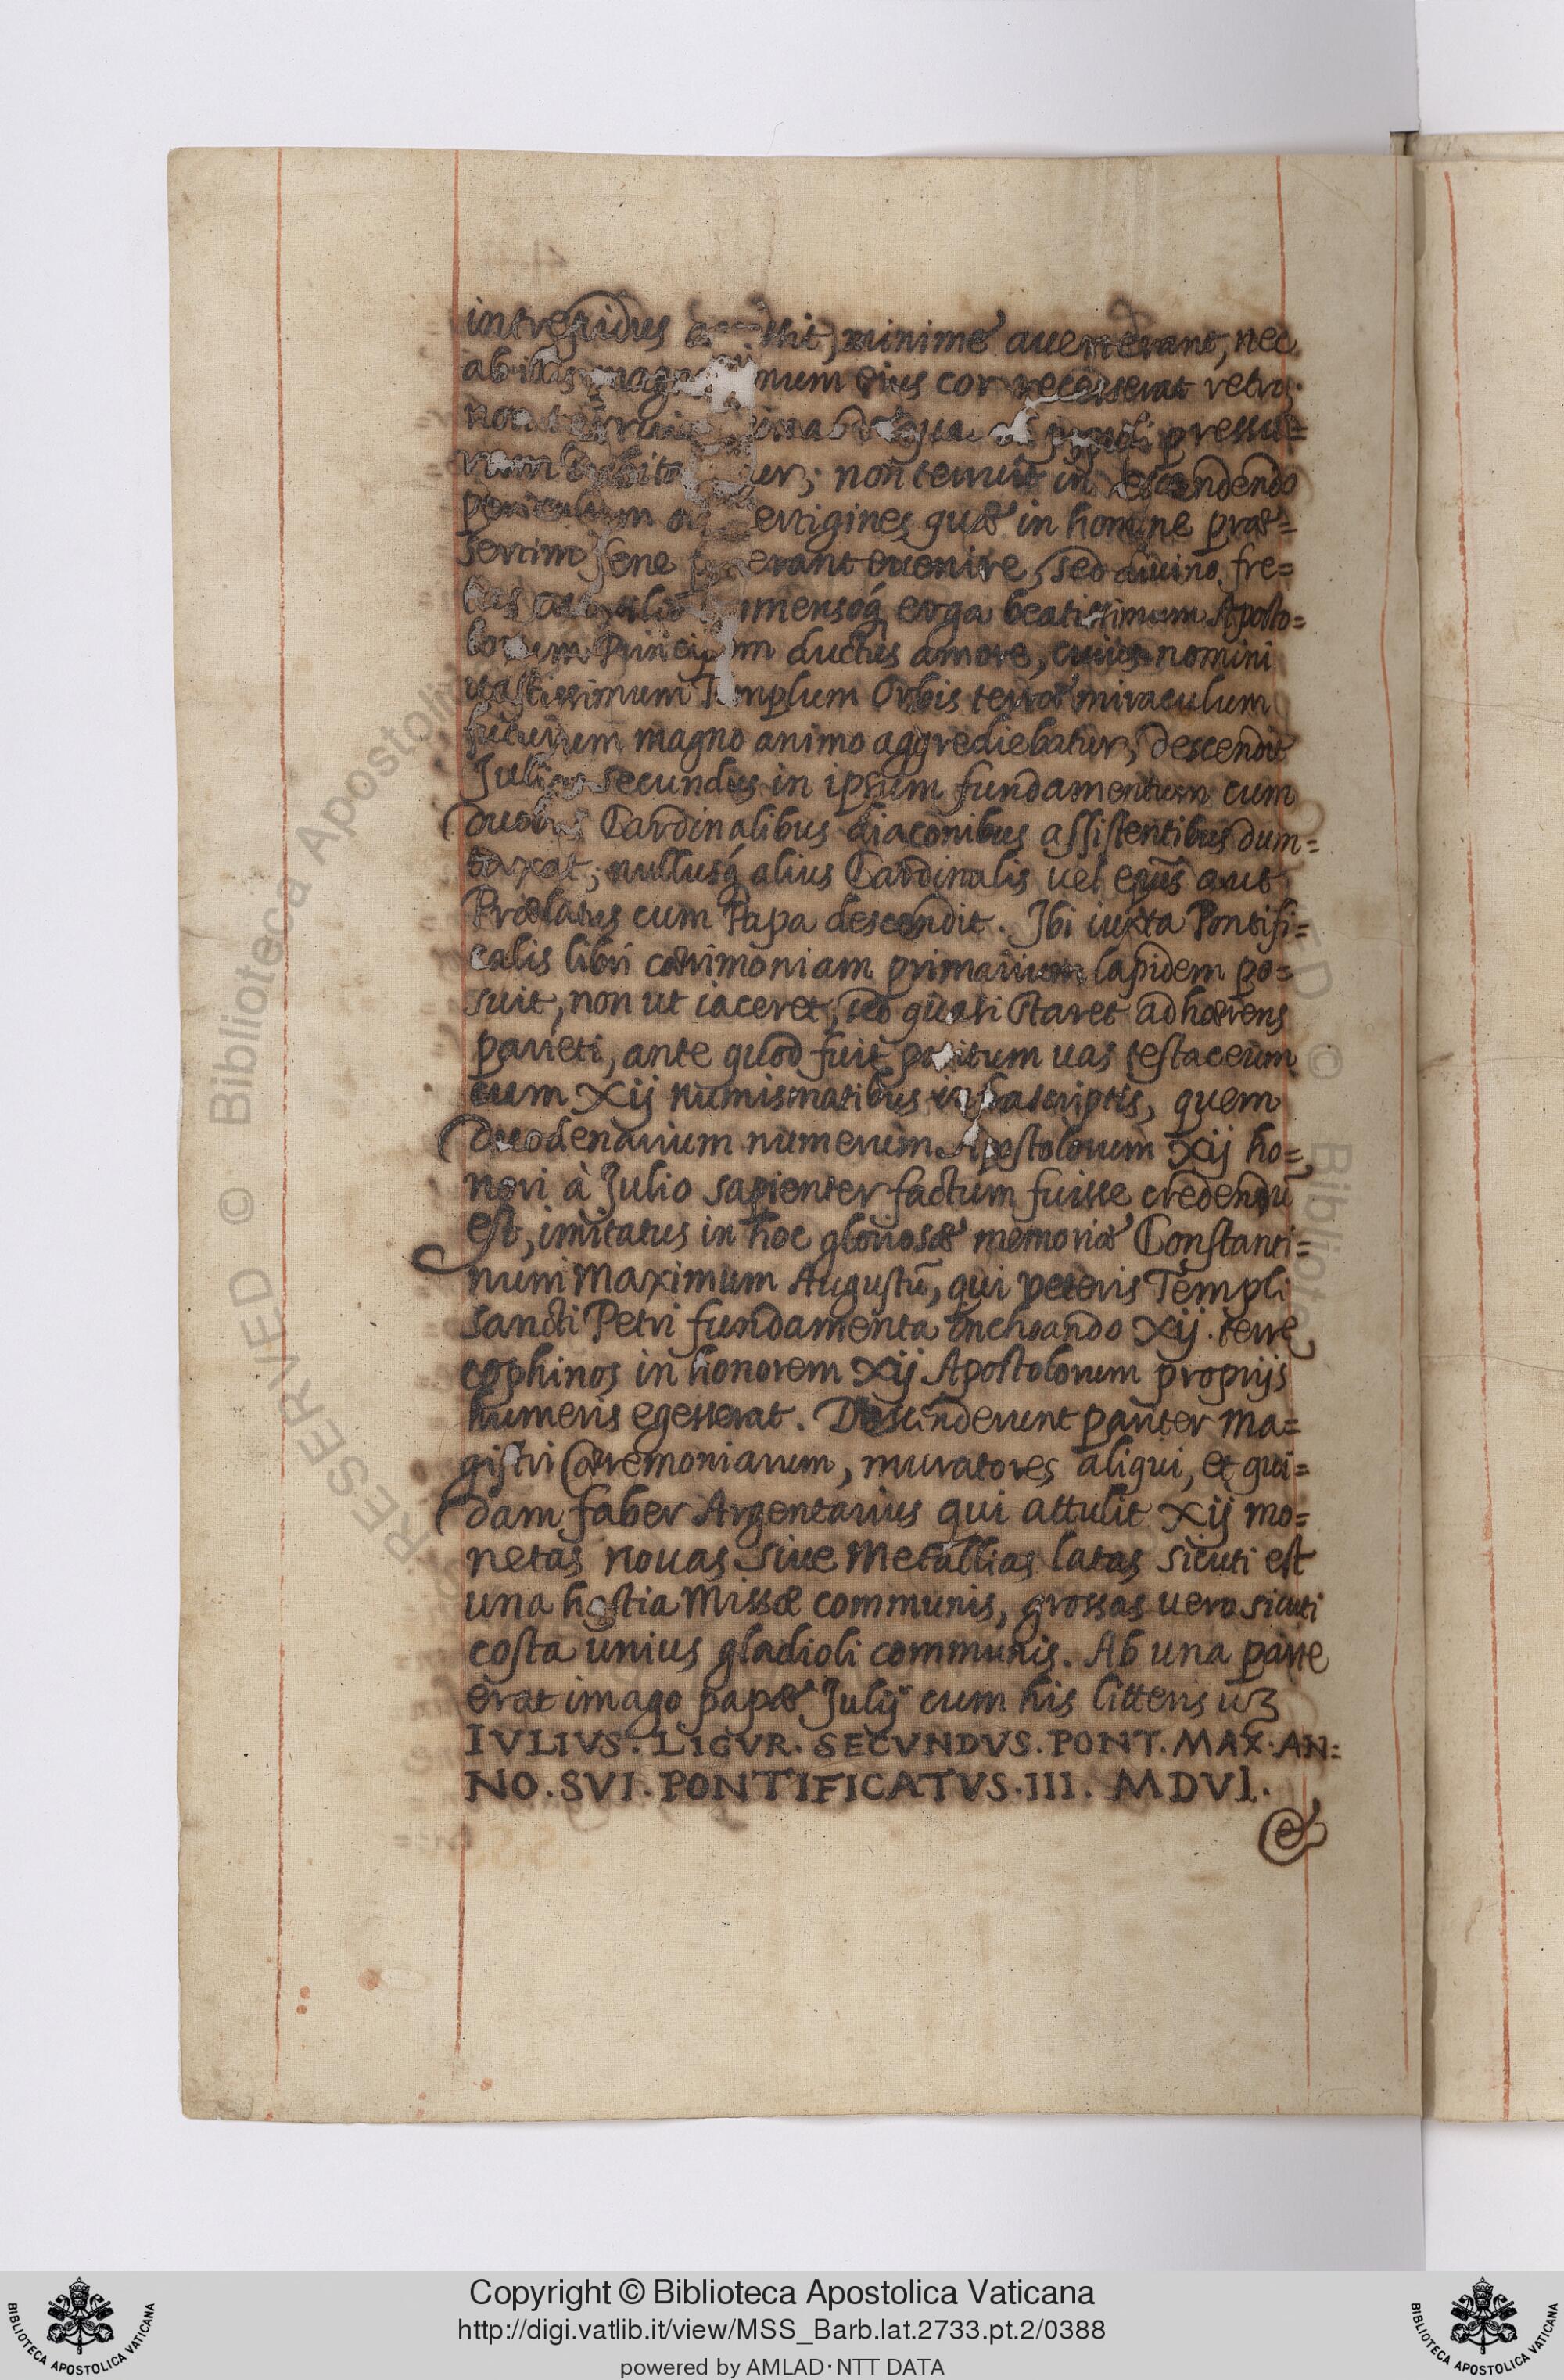 intrepidus minime auerterant, nec
ab illis num eius cor recesserat retro;
non pressu=
ram non terruit in descendendo
periculum quæ in homine præ=
sertim sene euenire, sed diuino fre=
tus imensoq́ erga beatissimum Aposto=
lorum ductus amore, cuius nomini
uastissimum Templum Orbis terræ miraculum
futurum magno animo aggrediebatur, descendit
Julius secundus in ipsum fundamentum cum
duobus Cardinalibus diaconibus assistentibus dum=
taxat, nullusq́ alius Cardinalis uel ep̄us aut
Prælatus cum Papa descendit. Ibi iuxta Pontifi=
calis libri cærimoniam primarium lapidem po=
suit, non ut iaceret, sed quasi staret adhærens
parieti, ante quod fuit positum uas testaceum
cum xij numismatibus infrascriptis, quem
duodenarium numerum Apostolorum xij ho=
nori à Julio sapienter factum fuisse credendū
est, imitatus in hoc gloriosæ memoriæ Constanti=
num Maximum Augustū, qui veteris Templi
sancti Petri fundamenta inchoando xij. terre
cophinos in honorem xij Apostolorum proprijs
humeris egesserat. Descenderunt pariter ma=
gistri Cæremoniarum, muratores aliqui, et qui=
dam faber Argentarius qui attulit xij mo=
netas nouas siue Metallias latas sicuti est
una hostia Missæ communis, grossas uero sicuti
costa unius gladioli communis. Ab una parte
erat imago papæ Julij cum his litteris uꝫ
IVLIVS. LIGVR. SECVNDVS. PONT. MAX. AN=
NO. SVI. PONTIFICATVS. III. MDVI.
RESERVED © Biblioteca Apostolica
Copyright © Biblioteca Apostolica Vaticana
http://digi.vatlib.it/view/MSS_Barb.lat.2733.pt.2/0388
powered by AMLAD·NTT DATA
BIBLIOTECA APOSTOLICA VATICANA
BIBLIOTECA APOSTOLICA VATICANA